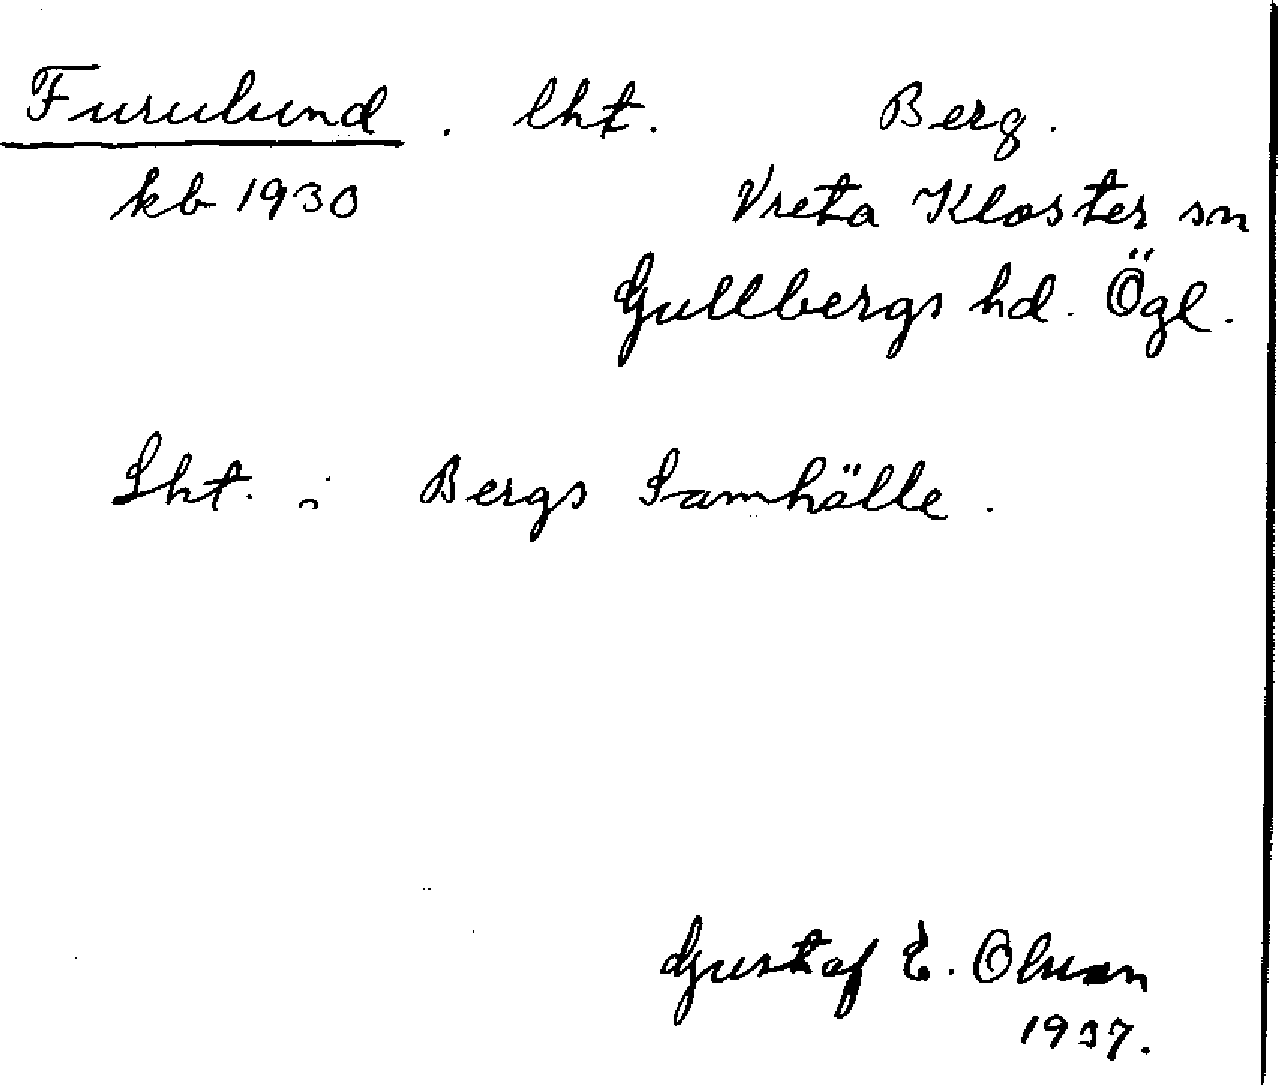 Furulund. lht. Berg.
kb 1930 Vreta Kloster sn
Gullbergs hd. Ögl.
Lht. i Bergs Samhälle.
Gustaf E. Olsson
1937.